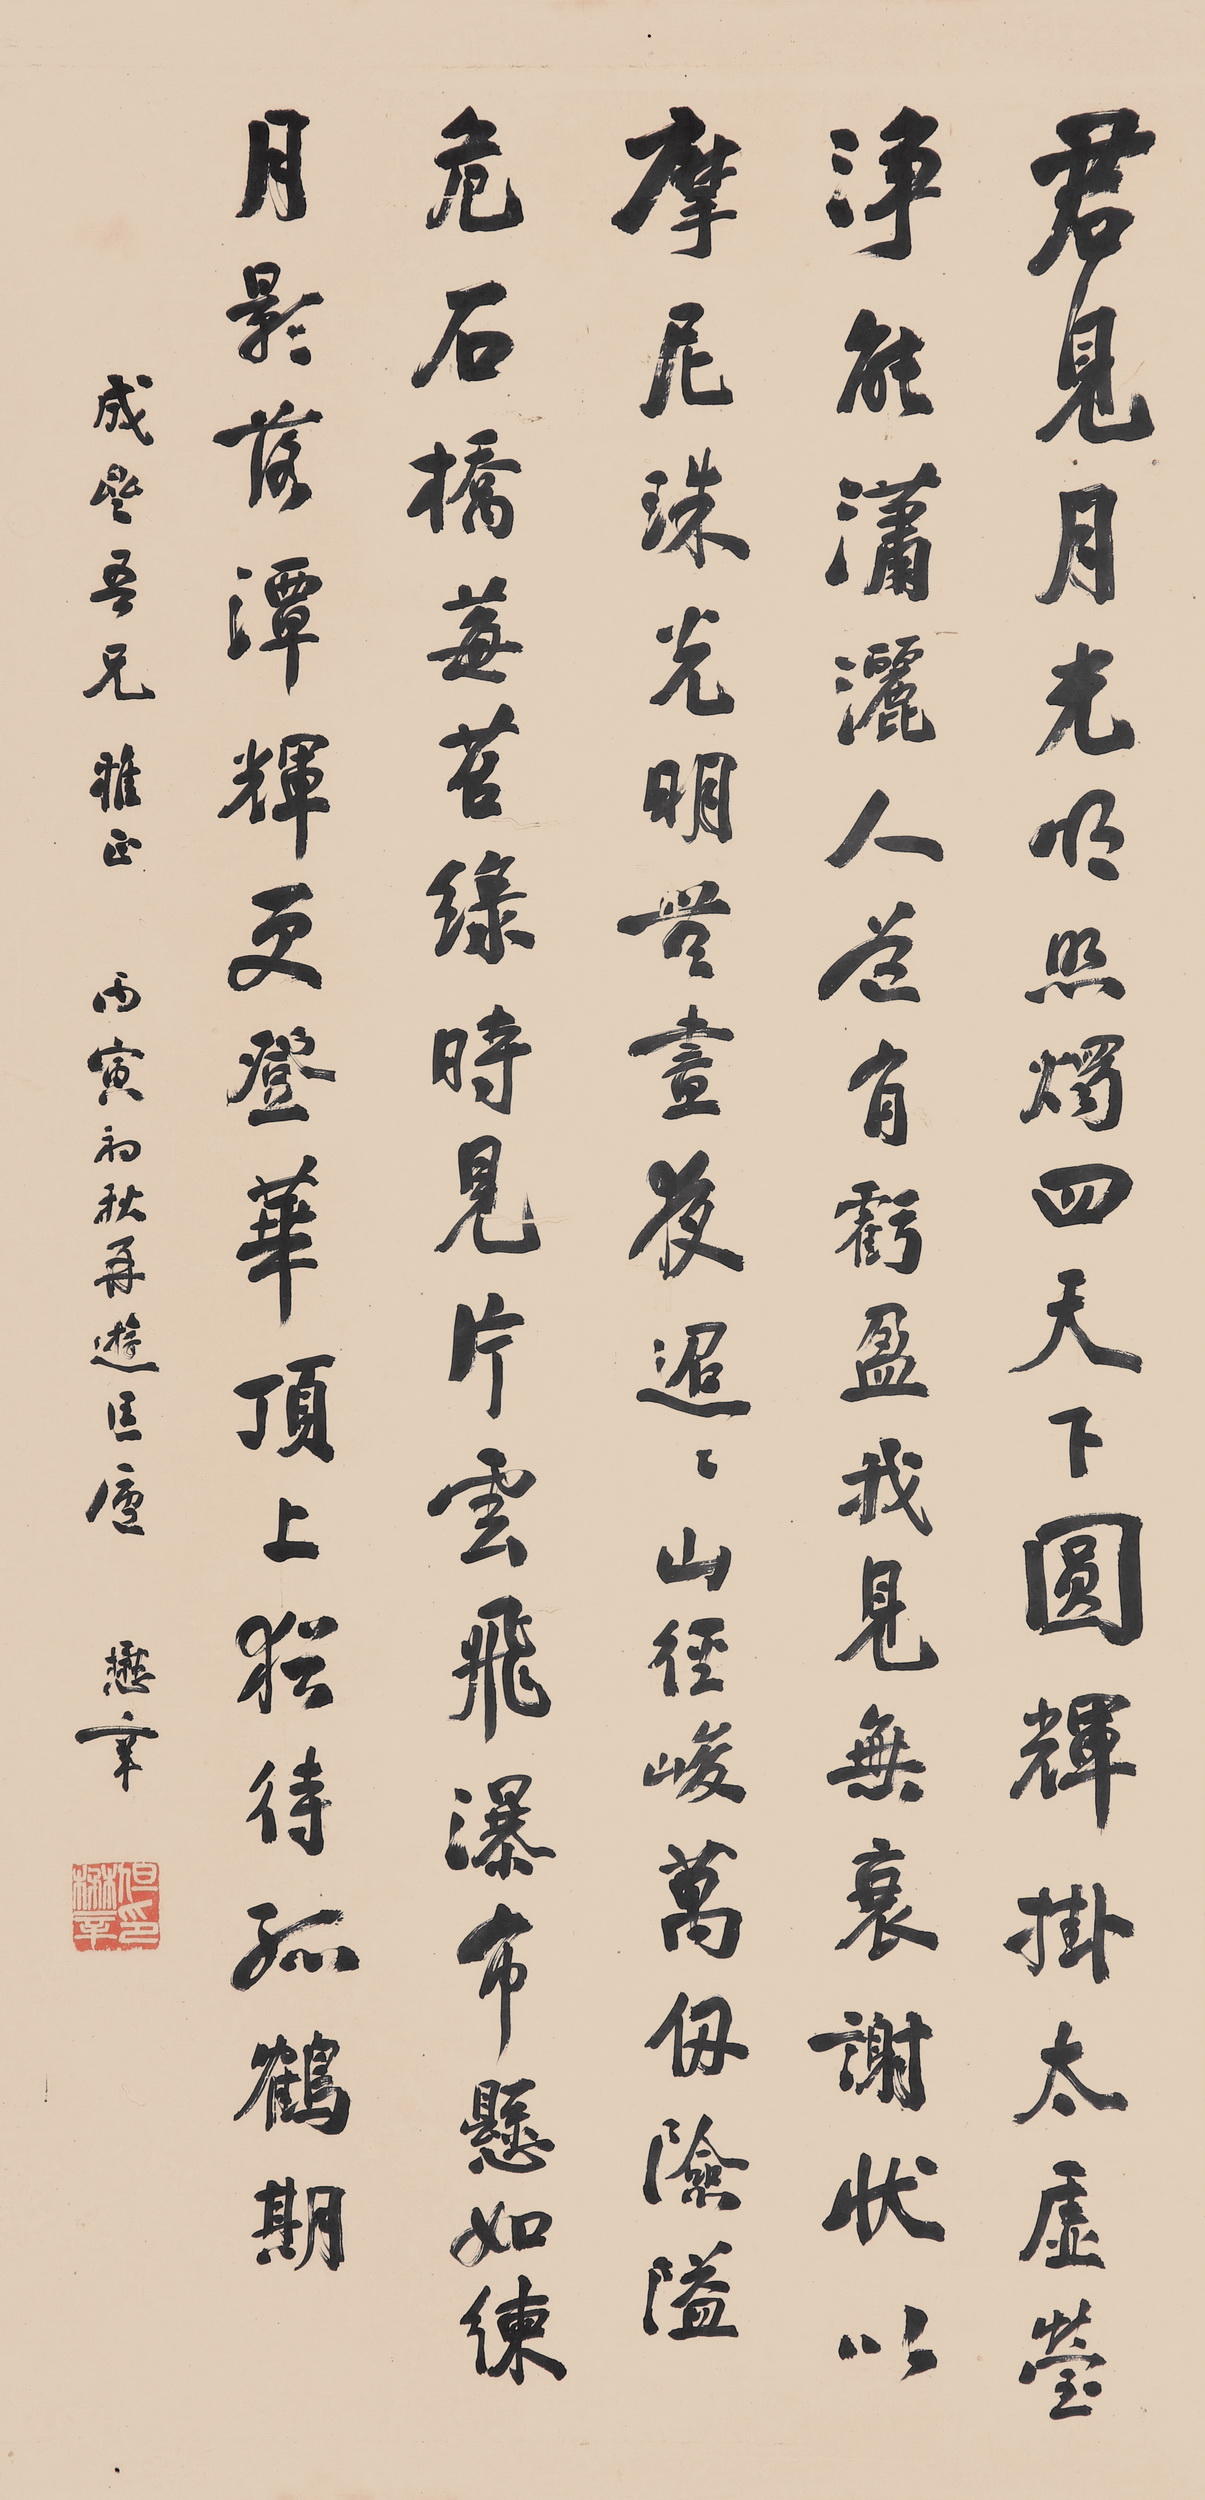 君見月光明照燭四天下圓輝掛太虛瑩
淨能瀟灑人茍有虧盈我見無衰謝狀以
摩尼珠光明無晝夜迢〻山徑峻萬仞險隘
危石橋莓苔綠時見片雲飛瀑布懸如練
月影落潭輝更登華頂上猶待孤鶴期
成堃吾兄 雅正 丙寅初秋再遊匡廬 懋辛
但懋辛印